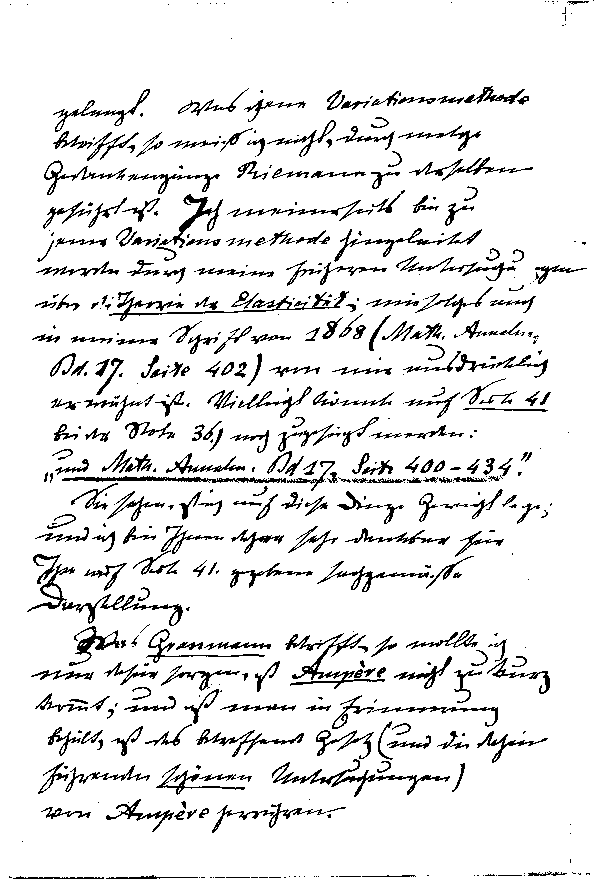 gelangt. Was jene Variationsmethode
betrifft, so weiß ich nicht, durch welche
Gedankengänge Riemann zu derselben
geführt ist. Ich meinerseits bin zu
jener Variationsmethode hingeleitet
worden durch meine früheren Untersuchungen
über die Theorie der Elasticität; wie solches auch
in meiner Schrift von 1868 (Math. Annalen,
Bd. 17. Seite 402) von mir ausdrücklich
erwähnt ist. Vielleicht könnte auf Seite 41
bei der Note 36) noch zugefügt werden:
„und Math. Annalen. Bd 17, Seite 400-434."
Sie sehen, daß ich auf diese Dinge Gewicht lege;
und ich bin Ihnen daher sehr dankbar für
Ihre auf Seite 41. gegebene sachgemässe
Darstellung.
Was Grassmann betrifft, so wollte ich
nur dafür sorgen, daß Ampère nicht zu kurz
kommt; und daß man in Erinnerung
behält, daß das betreffende Gesetz (und die dahin
führenden schönen Untersuchungen)
von Ampère herrühren.